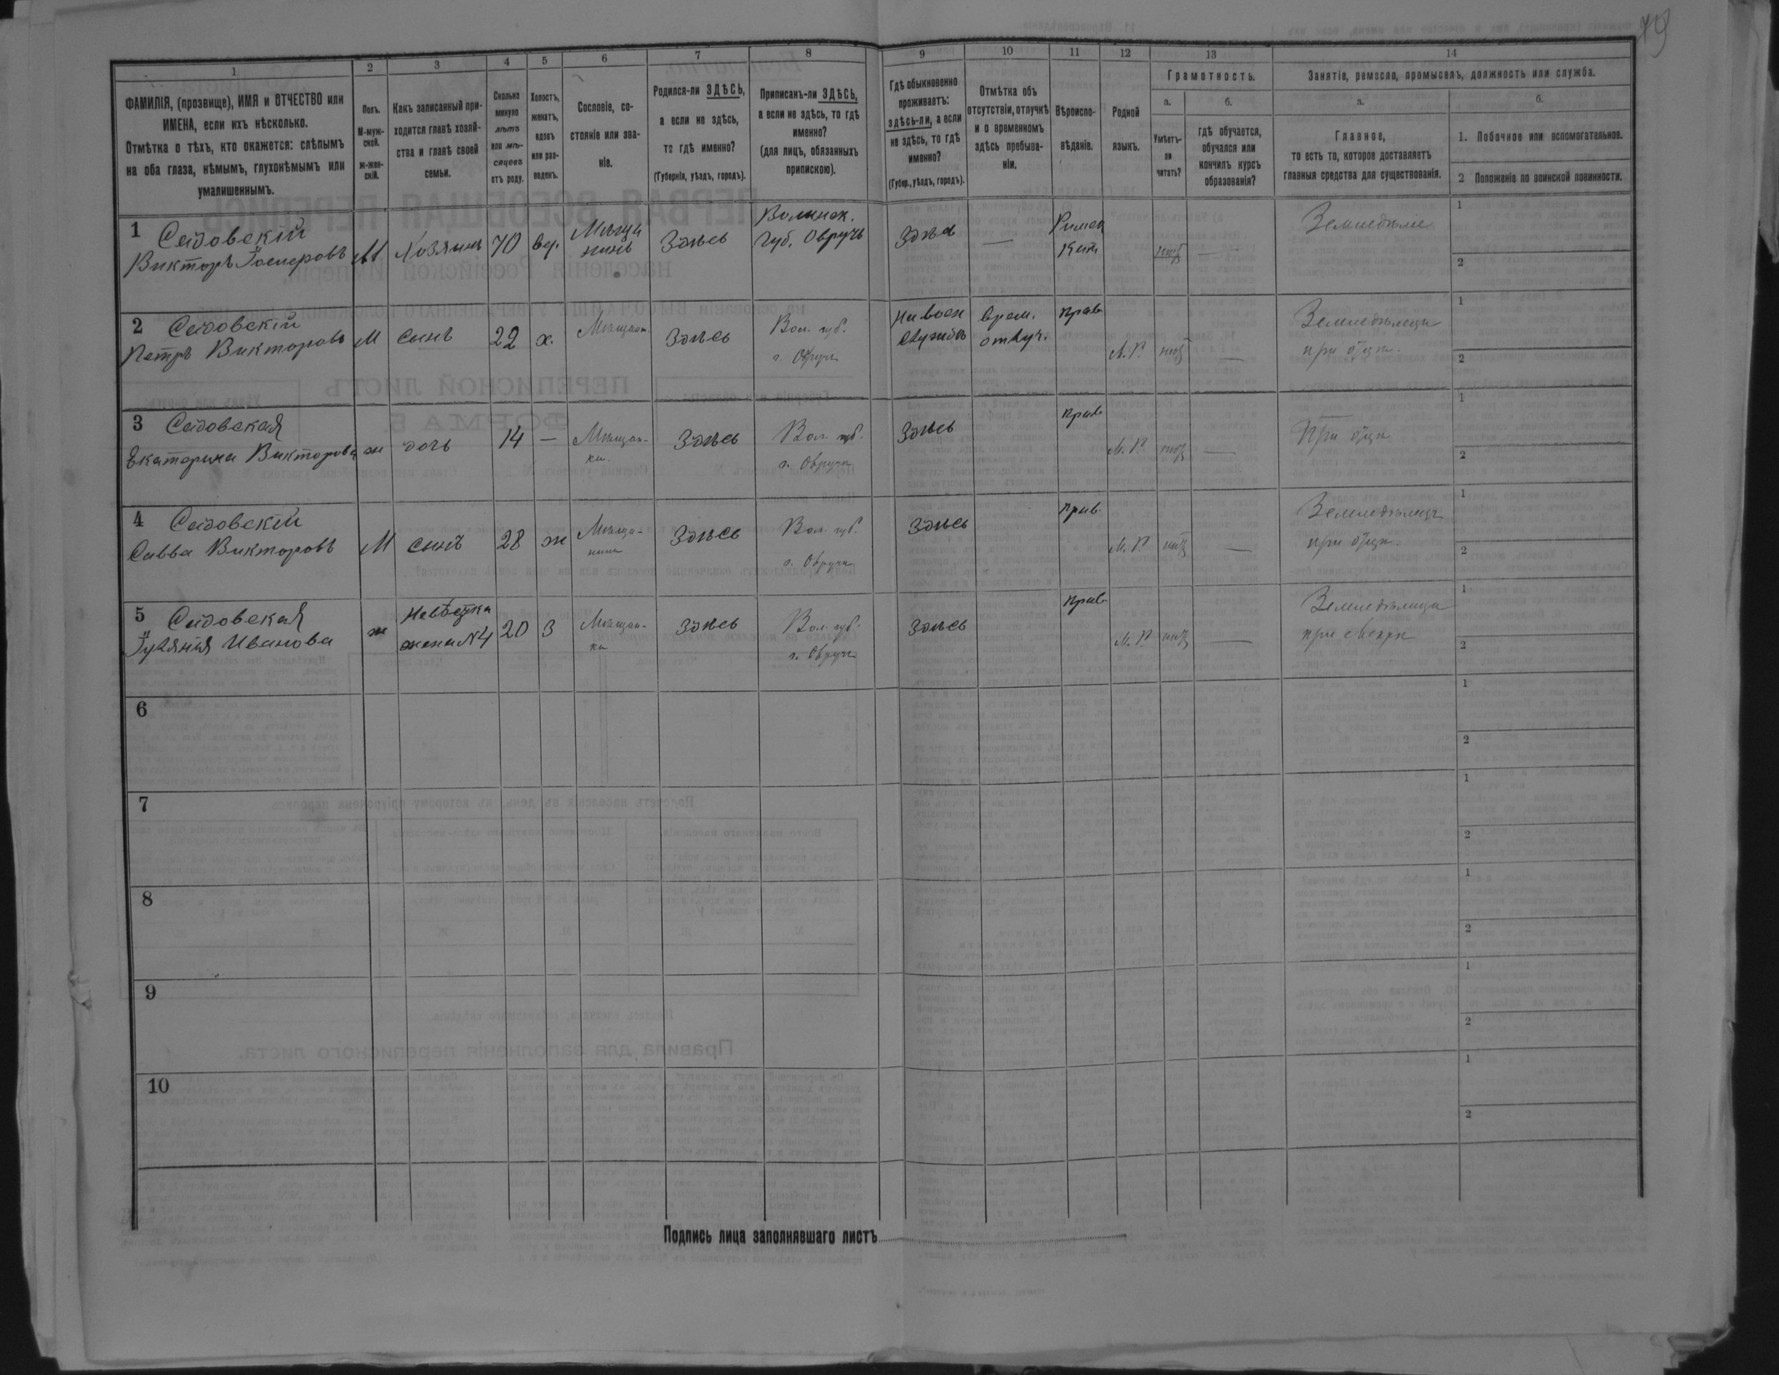 79
1 2 3 4 5 6 7 8 9 10 11 12 13 14
ФАМИЛІЯ, (прозвище), ИМЯ и ОТЧЕСТВО или
ИМЕНА, если ихъ нѣсколько.
Отмѣтка о тѣхъ, кто окажется: слѣпымъ
на оба глаза, нѣмымъ, глухонѣмымъ или
умалишеннымъ.
Полъ.
М-муж-
ской.
ж-жен-
скій.
Какъ записанный при-
ходится главѣ хозяй-
ства и главѣ своей
семьи.
Сколько
минуло
лѣтъ
или мѣ-
сяцевъ
отъ роду.
Холостъ,
женатъ,
вдовъ
или раз-
веденъ.
Сословіе, со-
стояніе или зва-
ніе.
Родился-ли ЗДѢСЬ,
а если не здѣсь,
то гдѣ именно?
(Губернія, уѣздъ, городъ).
Приписанъ-ли ЗДѢСЬ,
а если не здѣсь, то гдѣ
именно?
(для лицъ, обязанныхъ
припискою).
Гдѣ обыкновенно
проживаетъ:
здѣсь-ли, а если
не здѣсь, то гдѣ
именно?
(Губер., уѣздъ, городъ).
Отмѣтка объ
отсутствіи, отлучкѣ
и о временномъ
здѣсь пребыва-
ніи.
Вѣроиспо-
вѣданіе.
Родной
языкъ.
Грамотность.
а. б.
Умѣетъ-
ли
читать?
гдѣ обучается,
обучался или
кончилъ курсъ
образованія?
Занятіе, ремесло, промыселъ, должность или служба.
а. б.
Главное,
то есть то, которое доставляетъ
главныя средства для существованія.
1. Побочное или вспомогательное.
2 Положеніе по воинской повинности.
1 Сѣдовскій Мѣща Волынск. Римск Земледѣліе 1
Викторъ М Хозяинъ 70 вд. нинъ Здѣсь Губ. Овручъ Здѣсь — Кат. — 2
2 Сѣдовскій Вол. губ. врем. прав. Земледѣлецъ 1
Петръ Викторовъ М сынъ 22 х. Здѣсь г. Овручъ отлуч. — при отцѣ. 2
3 Сѣдовская Мѣщан- Вол. губ. прав. При отцѣ 1
Екатерина Викторова ж дочь 14 — ка Здѣсь г. Овручъ Здѣсь М. Р. — 2
4 Сѣдовскій Мѣща- Вол. губ. прав. Земледѣлецъ 1
Савва Викторовъ М сынъ 28 ж нинъ Здѣсь г. Овручъ Здѣсь М. Р. — при отцѣ. 2
5 Сѣдовская Невѣстка Мѣщан- Вол. губ. прав. 1
Иванова ж жена N4 20 З ка Здѣсь г. Овручъ Здѣсь М. Р. — при 2
6 1
2
7 1
2
8 1
2
9 1
2
10 1
2
Подпись лица заполнявшаго листъ